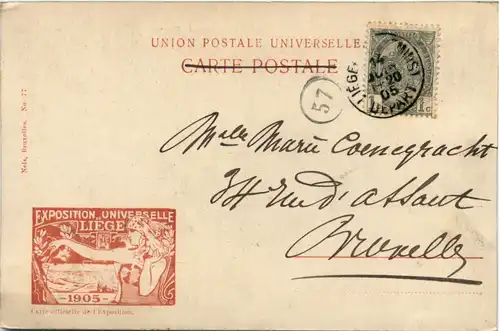 UNION POSTALE UNIVERSELLE.
CARTE POSTALE
LIÉGE DÉPART
20
05
1c
57
Nels, Bruxelles. No 77
Melle Marie Coenegracht
34 rue d'assaut
Bruxelles
EXPOSITION UNIVERSELLE
LIÉGE
-1905-
Carte officielle de l'Exposition.